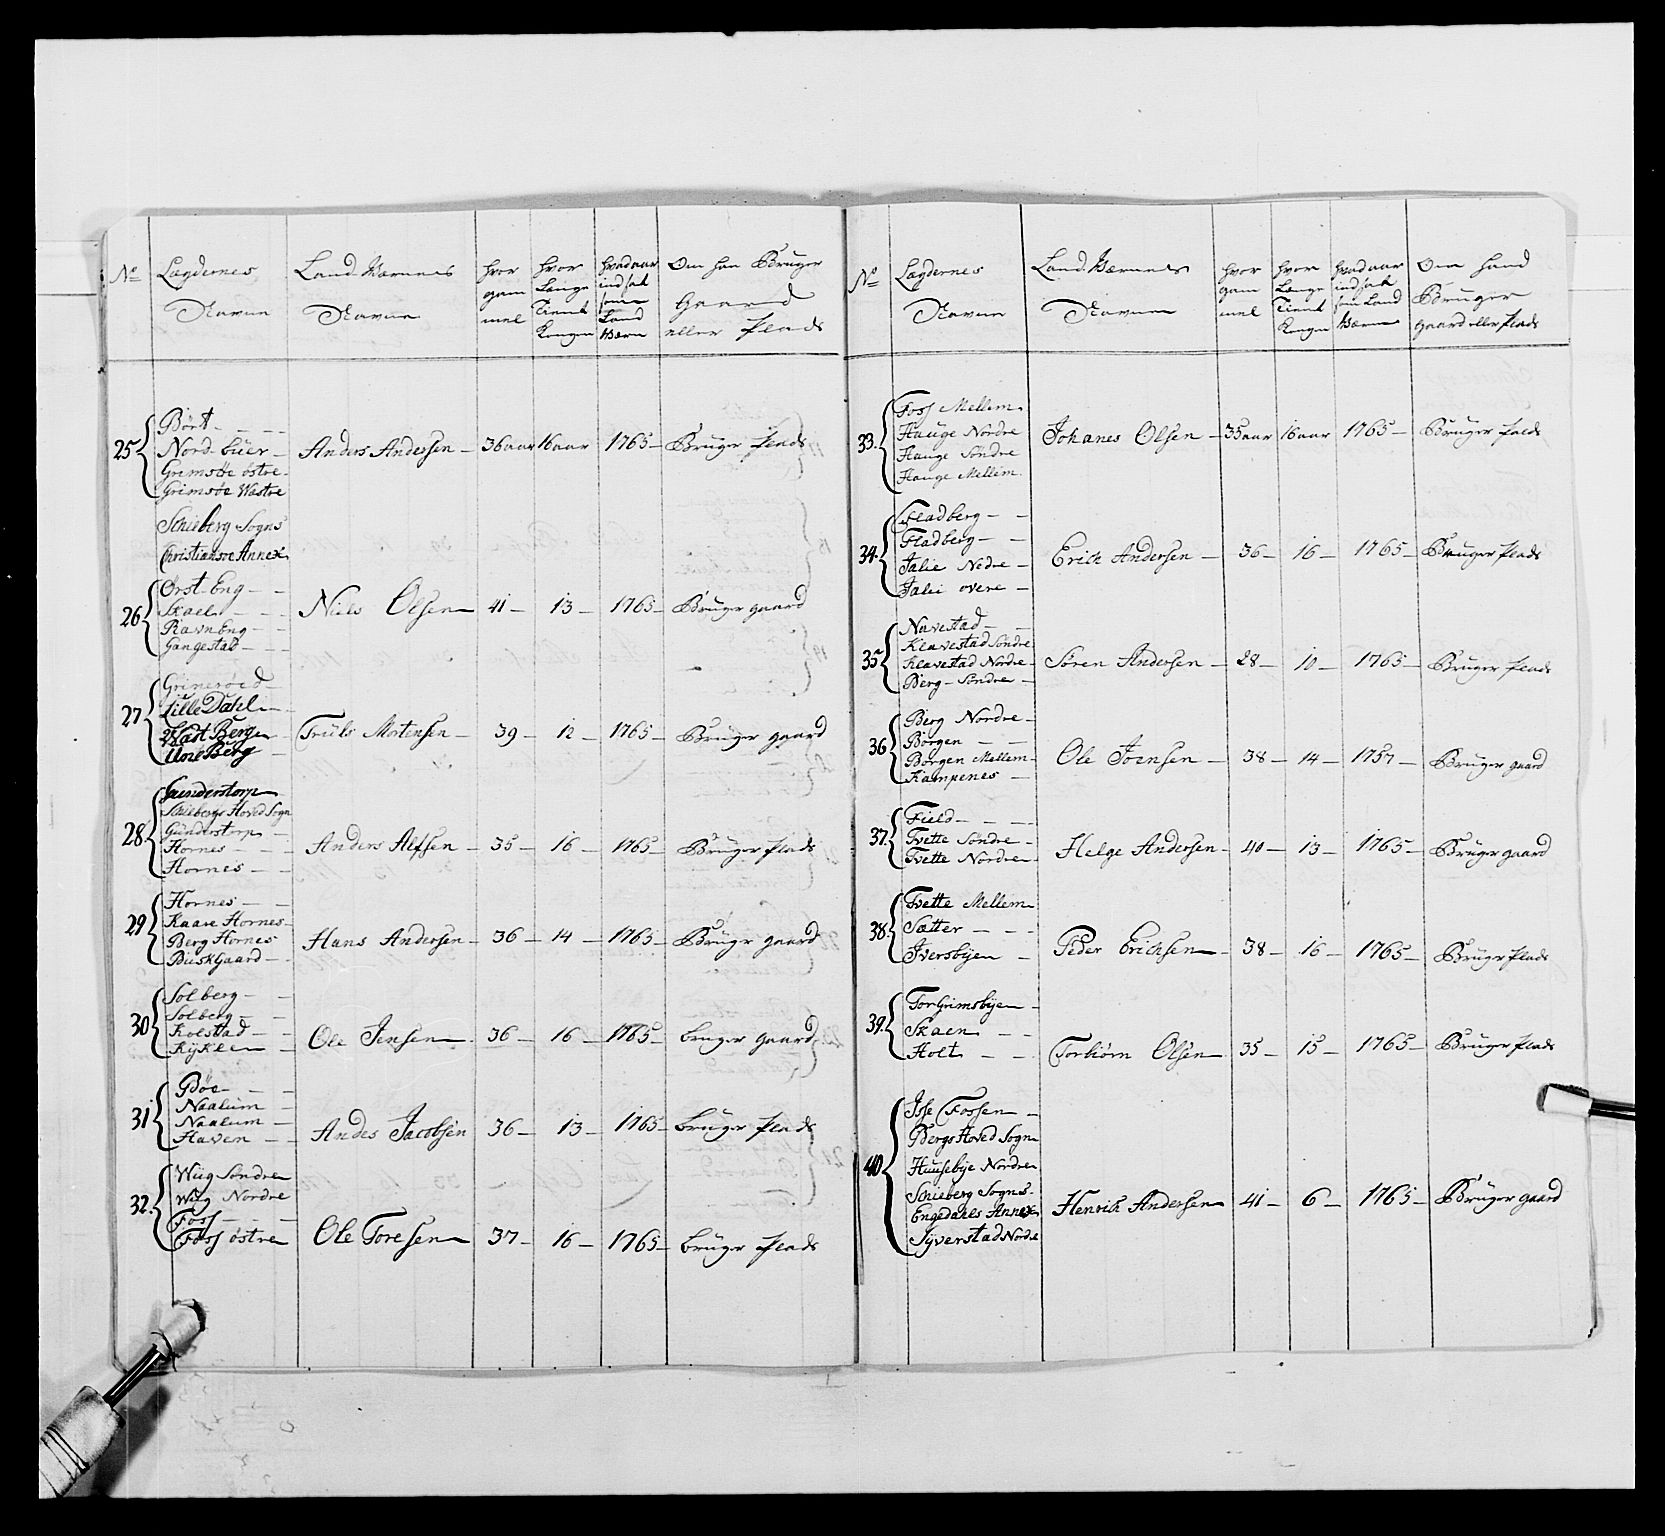 No Lægdernes Navne Land Værnes Navne hvor gam mel hvor Længe Tient Kongen hvad aar indsat som Land Værn Om han Bruger Gaard eller Plads
25 Bört
Nord-büer
Grimsöe östre
Grimsöe Wastre
Anders Andersen 36 aar 16 aar 1765 Bruger Plads
Schieberg Sogns
Christiansoe Annex
26 Örst-Eng
Skael
RavnEng
Gangestad
Niels Olsen 41 13 1765 Bruger gaard
27 Grineröed
Lille Dahl
Wast Bergen
Une Berg
Truls Mortensen 39 12 1765 Bruger gaard
28 Gunderstorp
Schiebergs Hoved Sogn
Günderstorp
Hornes
Hornes
Anders Alfsen 35 16 1765 Bruger Plads
29 Hornes
Kaare Hornes
Berg Hornes
BuskGaard
Hans Andersen 36 14 1765 Brugr gaard
30 Solberg
Solberg
Kolstad
Kÿklen
Ole Jensen 36 16 1765 bruger gaard
31 Böe
Naalum
Naalum
Haven
Andes Jacobsen 36 13 1765 bruger Plads
32. Wiig Söndre
Wiig Nordre
Foss
Foss östre
Ole Toresen 37 16 1765 brüger Plads
No Lægdernes Navne Land Værnes Navne hvor gam mel hvor Længe Tient Kongen hvad aar indsat som Land Værn Om hand Bruger gaard eller Plads
33. Foss Mellem
Hauge Nordre
Hauge Söndre
Hauge Mellem
Johanes Olsen 35 aar 16 aar 1765 Bruger Plads
34. Fladberg
Fladberg
Jalie Nedre
Jalie overe
Erich Andersen 36 16 1765 Bruger Plads
35 Navestad
Klavestad Söndre
Klavestad Nordre
Berg Söndre
Sören Andersen 28 10 1765 Bruger Plads
36 Berg Nordre
Borgen
Borgen Mellem
Kampenes
Ole Joensen 38 14 1757 Bruger gaard
37. Field
Tvette Söndre
Tvette Nordre
Helge Andersen 40 13 1765 Brüger gaard
38. Tvette Mellem
Sætter
Iversbÿen
Peder Erichsen 38 16 1765 Brüger Plads
39. TorGrimsbÿe
Skaen
Holt
Torbiörn Olsen 35 15 1765 Bruger Plads
40 Isse Fossen
Bergs Hoved Sogn
Huusebÿe Nordre
Schieberg Sogns
Engedahls Annex
Sÿverstad Nordre
Henrich Andersen 41 6 1765 Brüger gaard